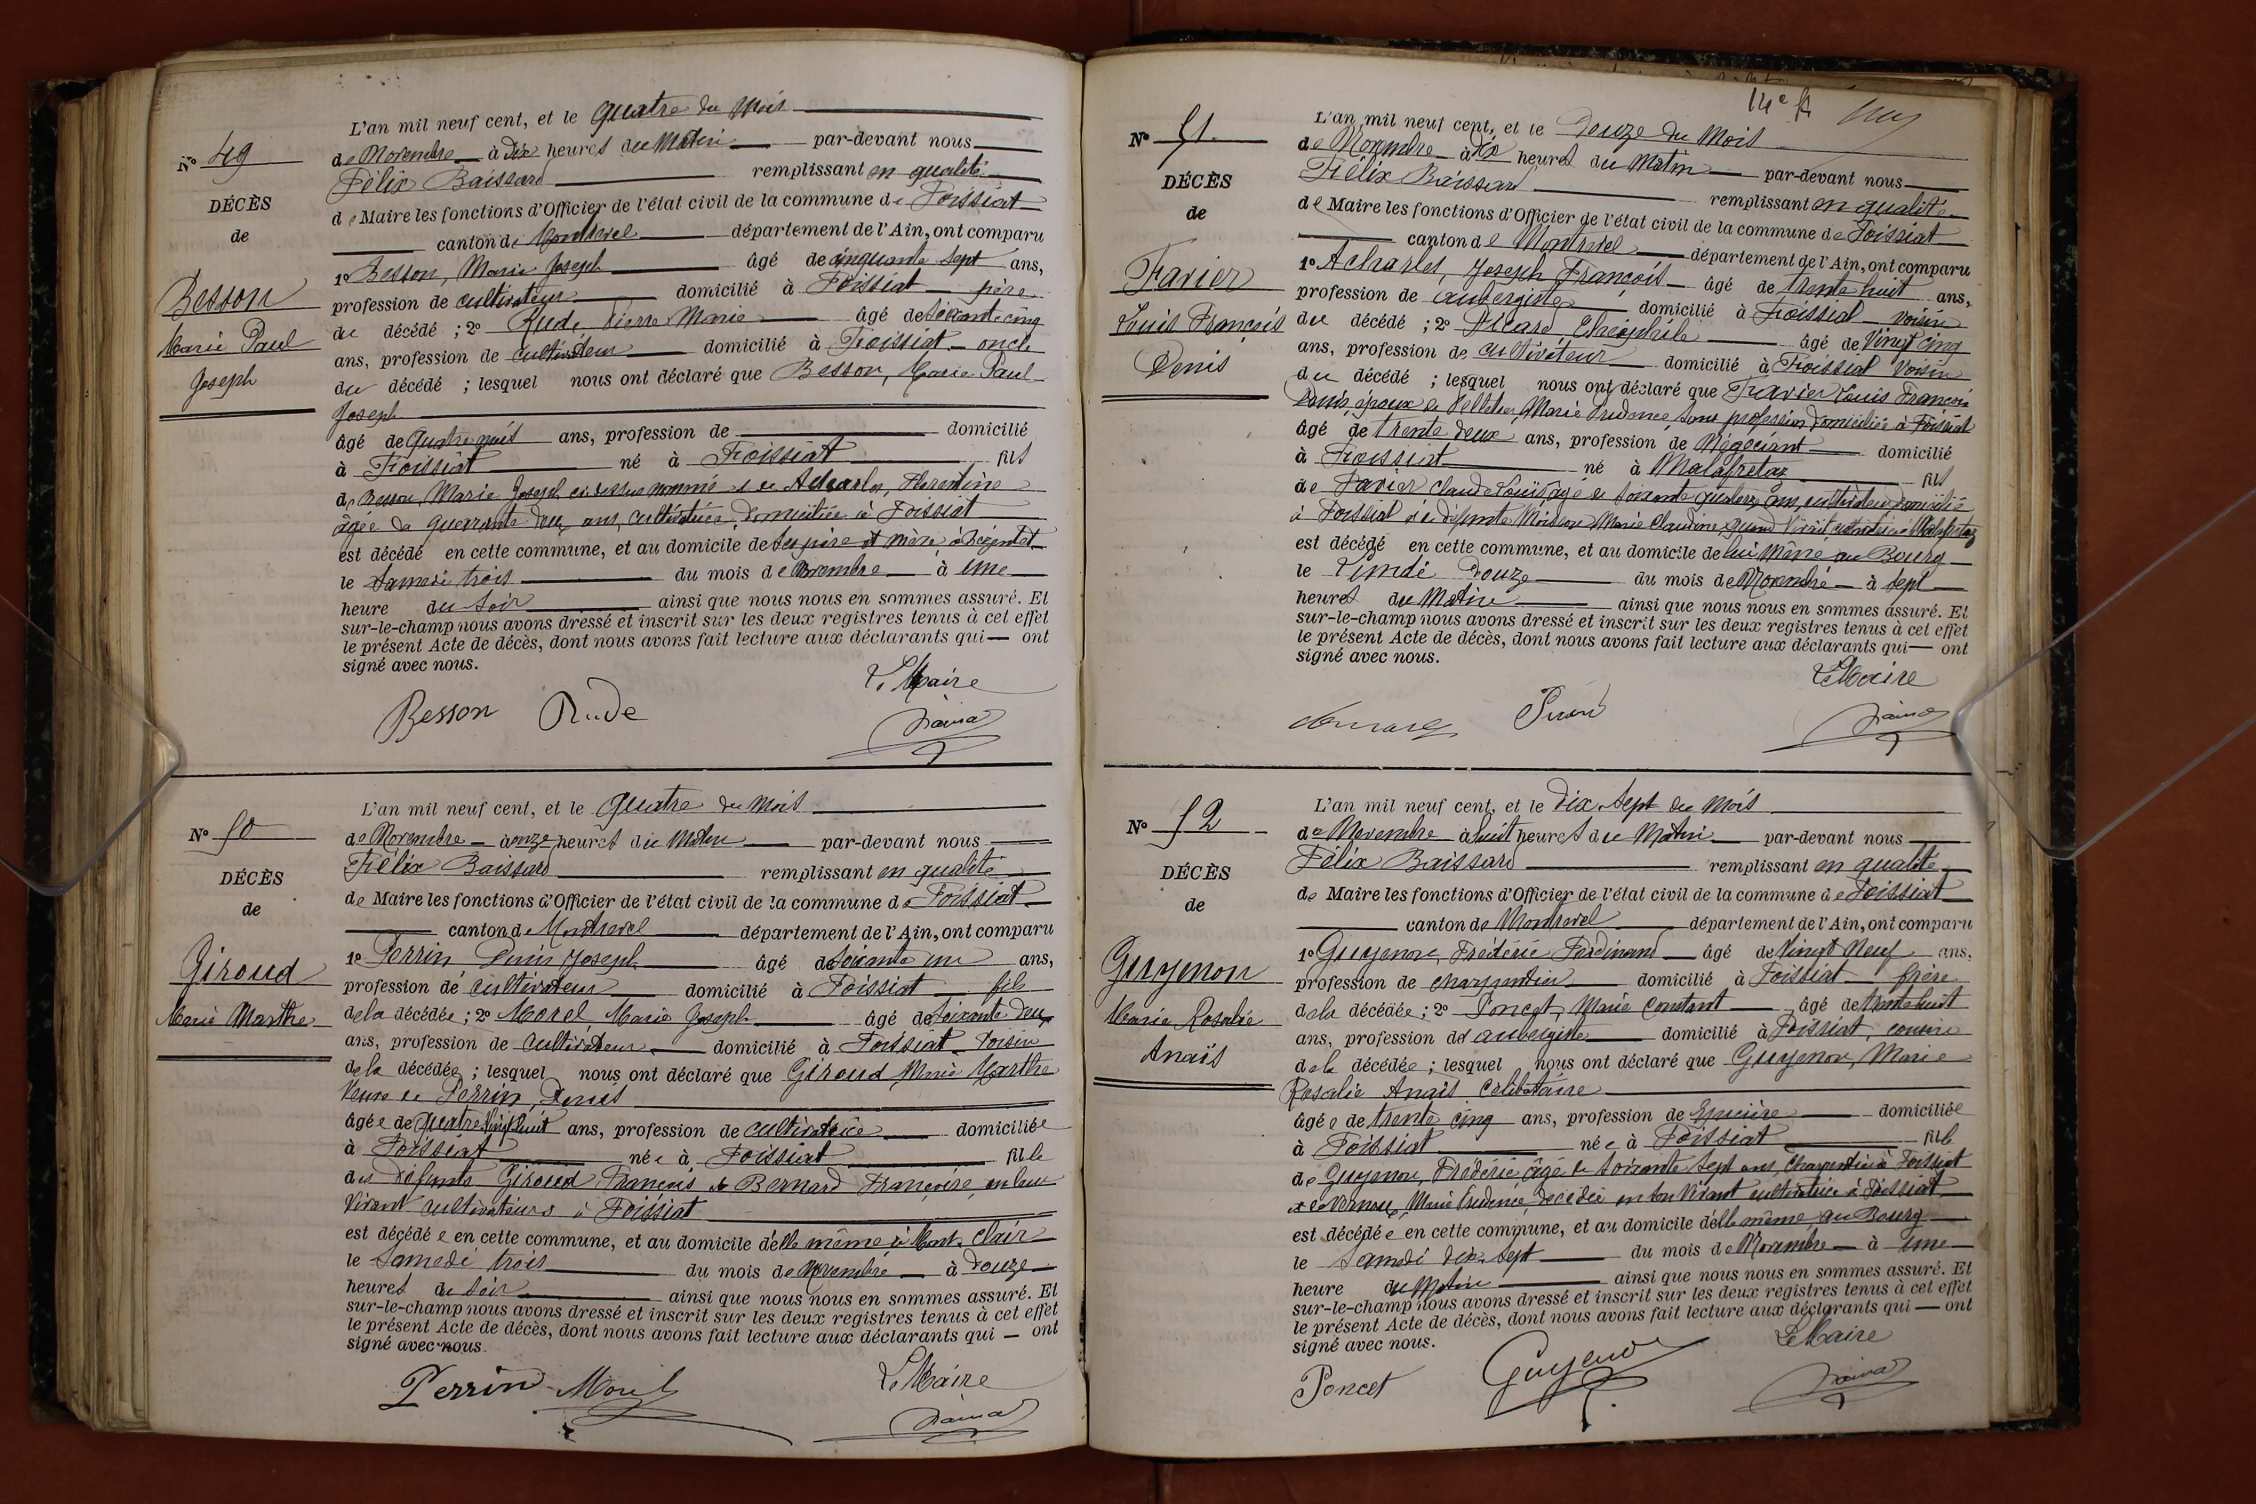 L'an mil neuf cent, et le quatre du mois
Nº 49
de Novembre à dix heures du Matin par-devant nous
Félix Baissard remplissant en qualité
DÉCÈS
de Maire les fonctions d'Officier de l'état civil de la commune de Foissiat
de
canton de Montrevel département de l'Ain, ont comparu
1º Besson, Marie Joseph âgé de cinquante sept ans,
Besson
profession de cultivateur domicilié à Foissiat père
du décédé ; 2º Rude, Pierre Marie âgé de soixante cinq
Marie Paul
ans, profession de cultivateur domicilié à Foissiat oncle
Joseph
du décédé ; lesquel nous ont déclaré que Besson, Marie Paul
Joseph
âgé de quatre mois ans, profession de domicilié
à Foissiat né à Foissiat fils
de Besson, Marie Joseph ci dessus nommé et de Acharles, Florentine
âgée de quarante deux ans, cultivatrice, domiciliée à Foissiat
est décédé en cette commune, et au domicile de ses père et mère
le Samedi trois du mois de Novembre à une
heure du soir ainsi que nous nous en sommes assuré. Et
sur-le-champ nous avons dressé et inscrit sur les deux registres tenus à cet effet
le présent Acte de décès, dont nous avons fait lecture aux déclarants qui — ont
signé avec nous.
Le Maire
Besson Rude
L'an mil neuf cent, et le quatre du mois
Nº 50
de Novembre à onze heures du Matin par-devant nous
Félix Baissard remplissant en qualité
DÉCÈS
de Maire les fonctions d'Officier de l'état civil de la commune de Foissiat
de
canton de Montrevel département de l'Ain, ont comparu
1º Perrin Denis Joseph âgé de soixante un ans,
Giroud
profession de cultivateur domicilié à Foissiat fils
Marie Marthe
de la décédée ; 2º Morel Marie Joseph âgé de soixante deux
ans, profession de cultivateur domicilié à Foissiat voisin
de la décédée ; lesquel nous ont déclaré que Giroud Marie Marthe
Veuve de Perrin, Denis
âgée de quatre vingt huit ans, profession de cultivatrice domiciliée
à Foissiat née à Foissiat fille
des défunts Giroud François et Bernard Françoise, en leur
vivant cultivateurs à Foissiat
est décédée en cette commune, et au domicile d'elle même à Mont Clair
le Samedi trois du mois de Novembre à douze
heures du soir ainsi que nous nous en sommes assuré. Et
sur-le-champ nous avons dressé et inscrit sur les deux registres tenus à cet effet
le présent Acte de décès, dont nous avons fait lecture aux déclarants qui — ont
signé avec nous.
Le Maire
Perrin Morel
14e
L'an mil neuf cent, et le Douze du Mois
Nº 51
de Novembre à dix heures du Matin par-devant nous
Félix Baissard remplissant en qualité
DÉCÈS
de Maire les fonctions d'Officier de l'état civil de la commune de Foissiat
de
canton de Montrevel département de l'Ain, ont comparu
1º Acharles, Joseph François âgé de trente huit ans,
Favier
profession de aubergiste domicilié à Foissiat voisin
Louis François
du décédé ; 2º Picard, Théophile âgé de vingt cinq
Denis
ans, profession de cultivateur domicilié à Foissiat voisin
du décédé ; lesquel nous ont déclaré que Favier Louis François
Denis, époux de Pelletier, Marie Prudence, sans profession domiciliée à Foissiat
âgé de trente deux ans, profession de Négociant domicilié
à Foissiat né à Malafretaz fils
de Favier Claude Louis, âgé de soixante quatorze ans, cultivateur domicilié
à Foissiat et de défunte Marie Claudine, quand vivait cultivatrice à Malafretaz
est décédé en cette commune, et au domicile de lui même au Bourg
le Lundi douze du mois de Novembre à sept
heures du Matin ainsi que nous nous en sommes assuré. Et
sur-le-champ nous avons dressé et inscrit sur les deux registres tenus à cet effet
le présent Acte de décès, dont nous avons fait lecture aux déclarants qui — ont
signé avec nous.
Le Maire
L'an mil neuf cent, et le dix sept du mois
Nº 52
de Novembre à huit heures du Matin par-devant nous
Félix Baissard remplissant en qualité
DÉCÈS
de Maire les fonctions d'Officier de l'état civil de la commune de Foissiat
de
canton de Montrevel département de l'Ain, ont comparu
1º Guyenon, Frédéric Ferdinand âgé de vingt neuf ans,
Guyenon
profession de charpentier domicilié à Foissiat frère
Marie Rosalie
de la décédée ; 2º Poncet, Marie Constant âgé de trente huit
Anaïs
ans, profession d'aubergiste domicilié à Foissiat, cousin
de la décédée ; lesquel nous ont déclaré que Guyenon, Marie
Rosalie Anaïs célibataire
âgée de trente cinq ans, profession de Epicière domiciliée
à Foissiat née à Foissiat fille
de Guyenon, Frédéric, âgé de soixante sept ans, charpentier à Foissiat
et de Marie Prudence, décédée en son vivant cultivatrice à Foissiat
est décédée en cette commune, et au domicile d'elle même, au Bourg
le Samedi dix sept du mois de Novembre à une
heure du Matin ainsi que nous nous en sommes assuré. Et
sur-le-champ nous avons dressé et inscrit sur les deux registres tenus à cet effet
le présent Acte de décès, dont nous avons fait lecture aux déclarants qui — ont
signé avec nous.
Le Maire
Poncet Guyenon